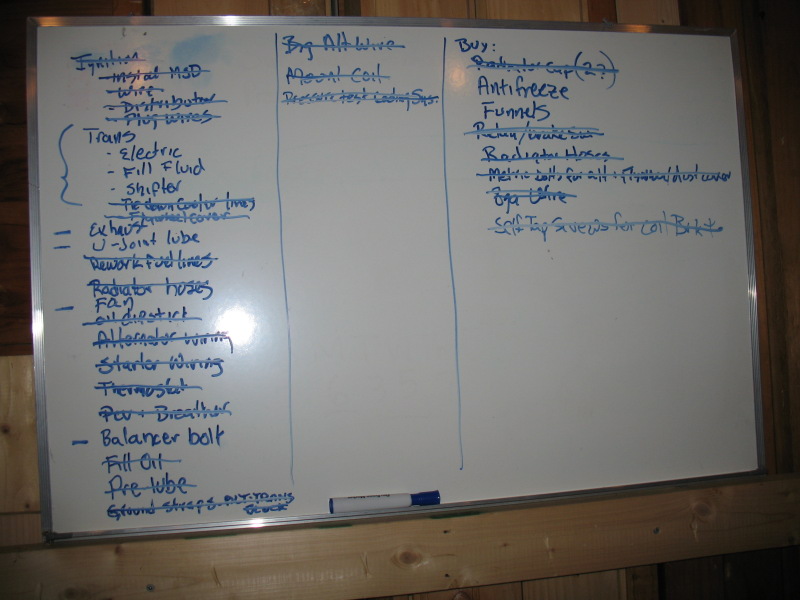 Ignition
- Install MSD
- Wire
- Distributor
- Plug Wires
Trans
- Electric
- Fill Fluid
- Shifter
- Tie down Cooler lines
- Flywheel cover
Exhaust
U-Joint lube
Rework Fuel lines
Radiator hoses
Fan
oil dipstick
Alternator wiring
Starter Wiring
Thermostat
PCV + Breather
Balancer bolt
Fill Oil
Pre lube
Ground straps
Block
Big Alt Wire
Mount Coil
Pressure test Cooling Sys.
Buy:
Radiator Cap (2?)
Antifreeze
Funnels
Radiator Hoses
Metric bolts for alt + Flywheel/dust cover
8ga Wire
Self Tap Screws for coil Brkt